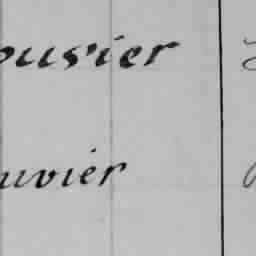 ousier
uvier